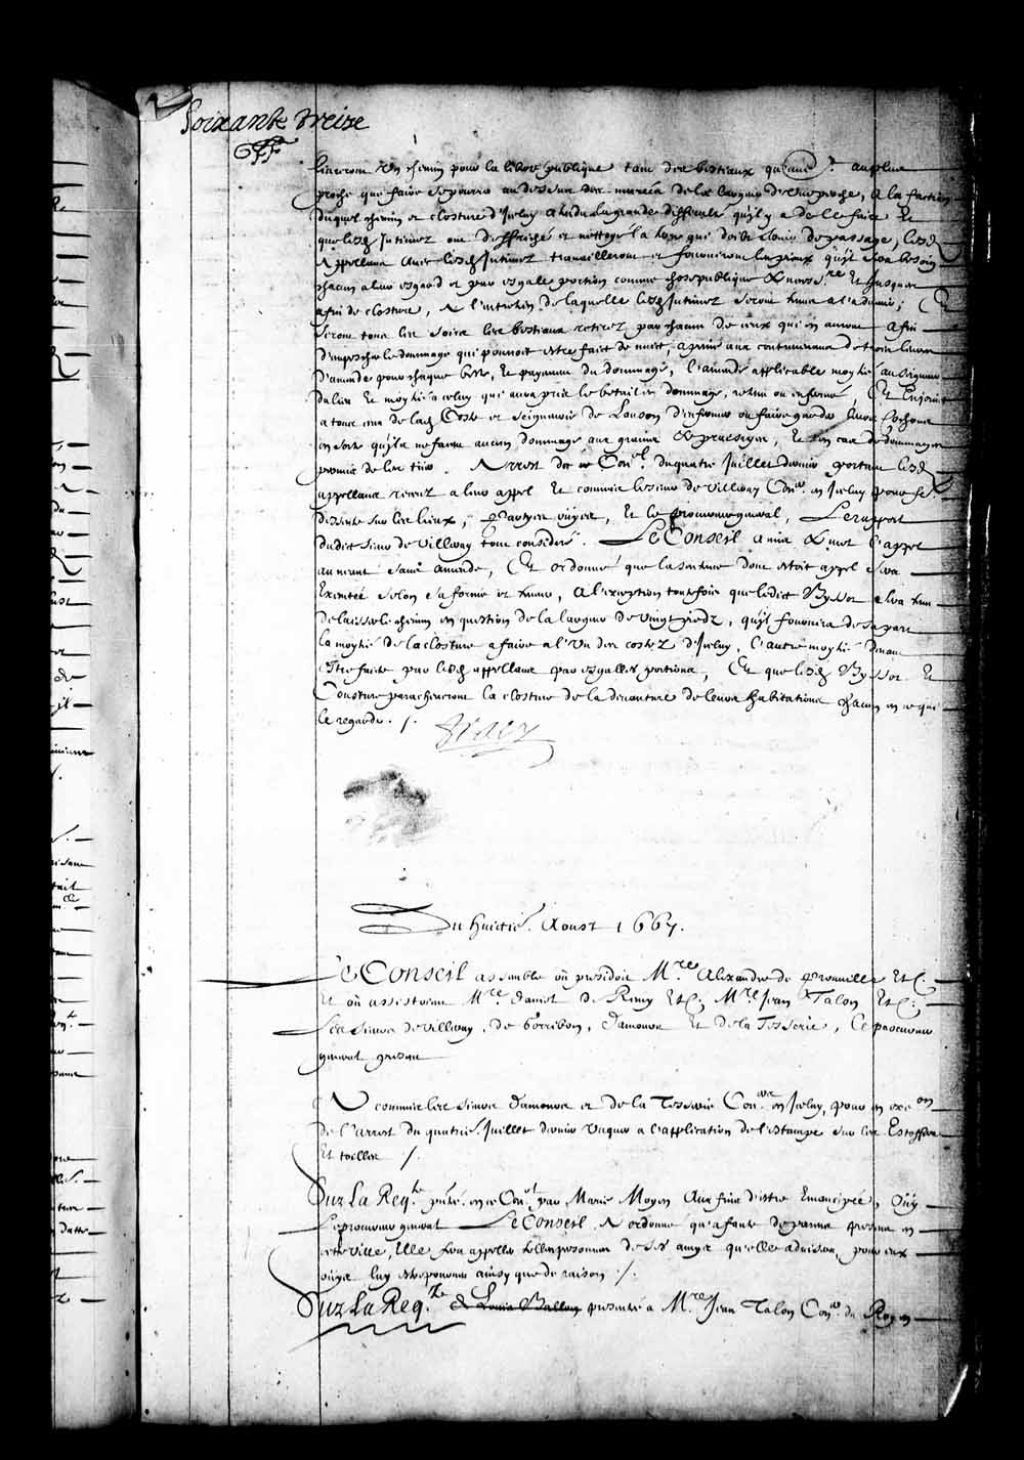 Soixante treize
livreront un chemin pour la liberté publique tant des bestiaux que au plus
proche que faire se pourra au dessus des marais de la largeur d'une perche, à la faction
duquel chemin et closture d'iceluy attendu la grande difficulté qu'il y a de le faire Et
que lesd. Intimez ont deffriché et nettoyé la terre qui doibt servir de passage, lesd.
Appellans avec lesd. Intimez travailleront et fourniront les pieux qu'il sera besoin
chacun a leur esgard et par esgale portion comme chose publique &
afin de closture, A l'entretien de laquelle lesd. Intimez seront tenus a l'advenir; Et
seront tous les soirs les bestiaux retirez par chacun de ceux qui en auront afin
d'empescher le dommage qui pourroit estre faict de nuict, a peine aux contrevenans de trois livres
d'amende pour chaque beste, Et payement du dommage, l'amende applicable moytié au seigneur
du lieu Et moytié a celuy qui aura pris le betail en dommage, retenu ou enfermé, Et Enjoint
a tous ceux de lad. Coste et seigneurie de Lauson d'enfermer ou faire garder leurs cochons
en sorte qu'ils ne facent aucun dommage aux grains &, Et en cas de dommage
permis de les tuer. Arrest de ce Con.el du quatre Juillet dernier portant lesd.
appellans receuz a leur appel Et commis le sieur de Villeray Con.er en iceluy pour se
dessente sur les lieux, partyes ouyes, Et le procureur general, Le rapport
dudict sieur de Villeray tout consideré. Le Conseil a mis & met l'appel
au neant sans amende, Et ordonné que la sentence dont estoit appel sera
Executée selon sa forme et teneur, A l'exception toutesfois que ledict Byssot sera tenu
delaisser le chemin en question de la largeur de vingt piedz, qu'il fournira de sa part
la moytié de la closture a faire a l'un des costez d'iceluy, l'autre moytié devant
estre faite par lesd. appellans par esgalles portions, Et que lesd. Byssot Et
Cousture paracheveront la closture de la devanture de leurs habitations chacun en ce qui
le regarde ./.
Tracy
Du huictie. Aoust 1667.
Le Conseil assemblé où presidoit M.re Alexandre de Prouville Et.
Et où assistoient M.re Daniel de Remy Et. M.re Jean Talon Et.
Les sieurs de Villeray, de Gorribon, Damours Et de la Tesserie, Le procureur
general present
A commis les sieurs Damours et de la Tesserie Con.ers en iceluy, pour en exe.on
de l'arrest du quatrie. Juillet dernier vaquer a l'application de l'estampe sur les Estoffes
Et toilles ./.
Sur La Req.te pntée en ce Con.el par Marie Moyen aux fins d'estre Emancipée, Ouy
Le procureur general Le Conseil A ordonné qu'a faute de parens presens en
cette ville, Elle fera appeller telles personnes de ses amys qu'elle advisera, pour eux
ouys luy estre pourveu ainsy que de raison ./.
Sur La Req.te de Louis presenté a M.re Jean Talon Con.er du Roy en